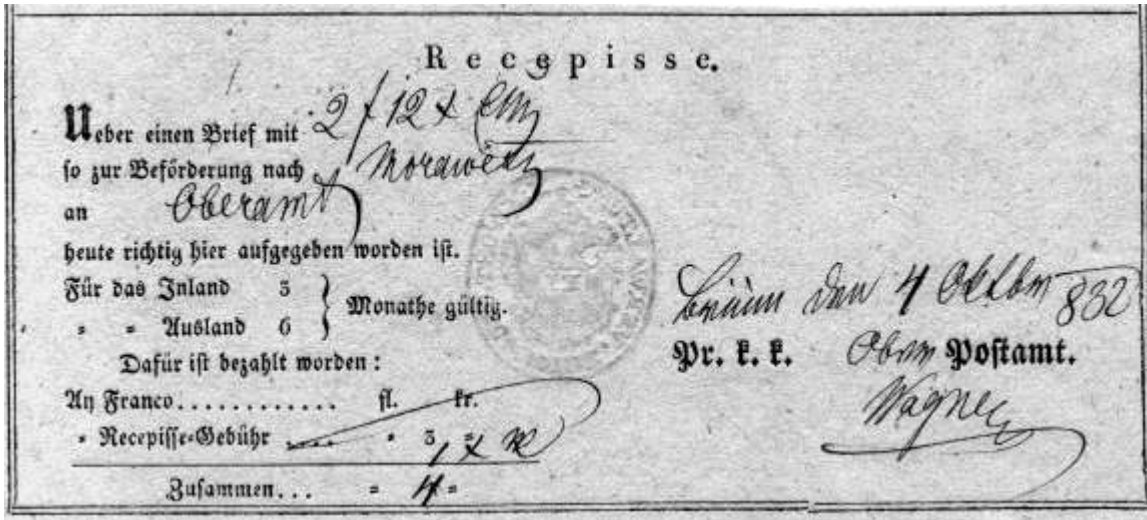 Recepisse.
Ueber einen Brief mit 2 f 12 x CMz
so zur Beförderung nach Morawetz
an Oberamt
heute richtig hier aufgegeben worden ist.
Für das Inland 3
= = Ausland 6 } Monathe gültig.
Dafür ist bezahlt worden:
An Franco............ fl. kr.
= Recepisse=Gebühr .... = 3 =
1 x
Zusammen... = 4 =
Brünn den 4 Oktbr 832
Pr. k. k. Ober Postamt.
Wagner